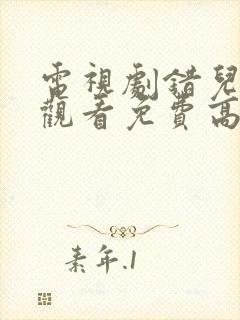 電視劇錯兒
觀看免費高
素年.1